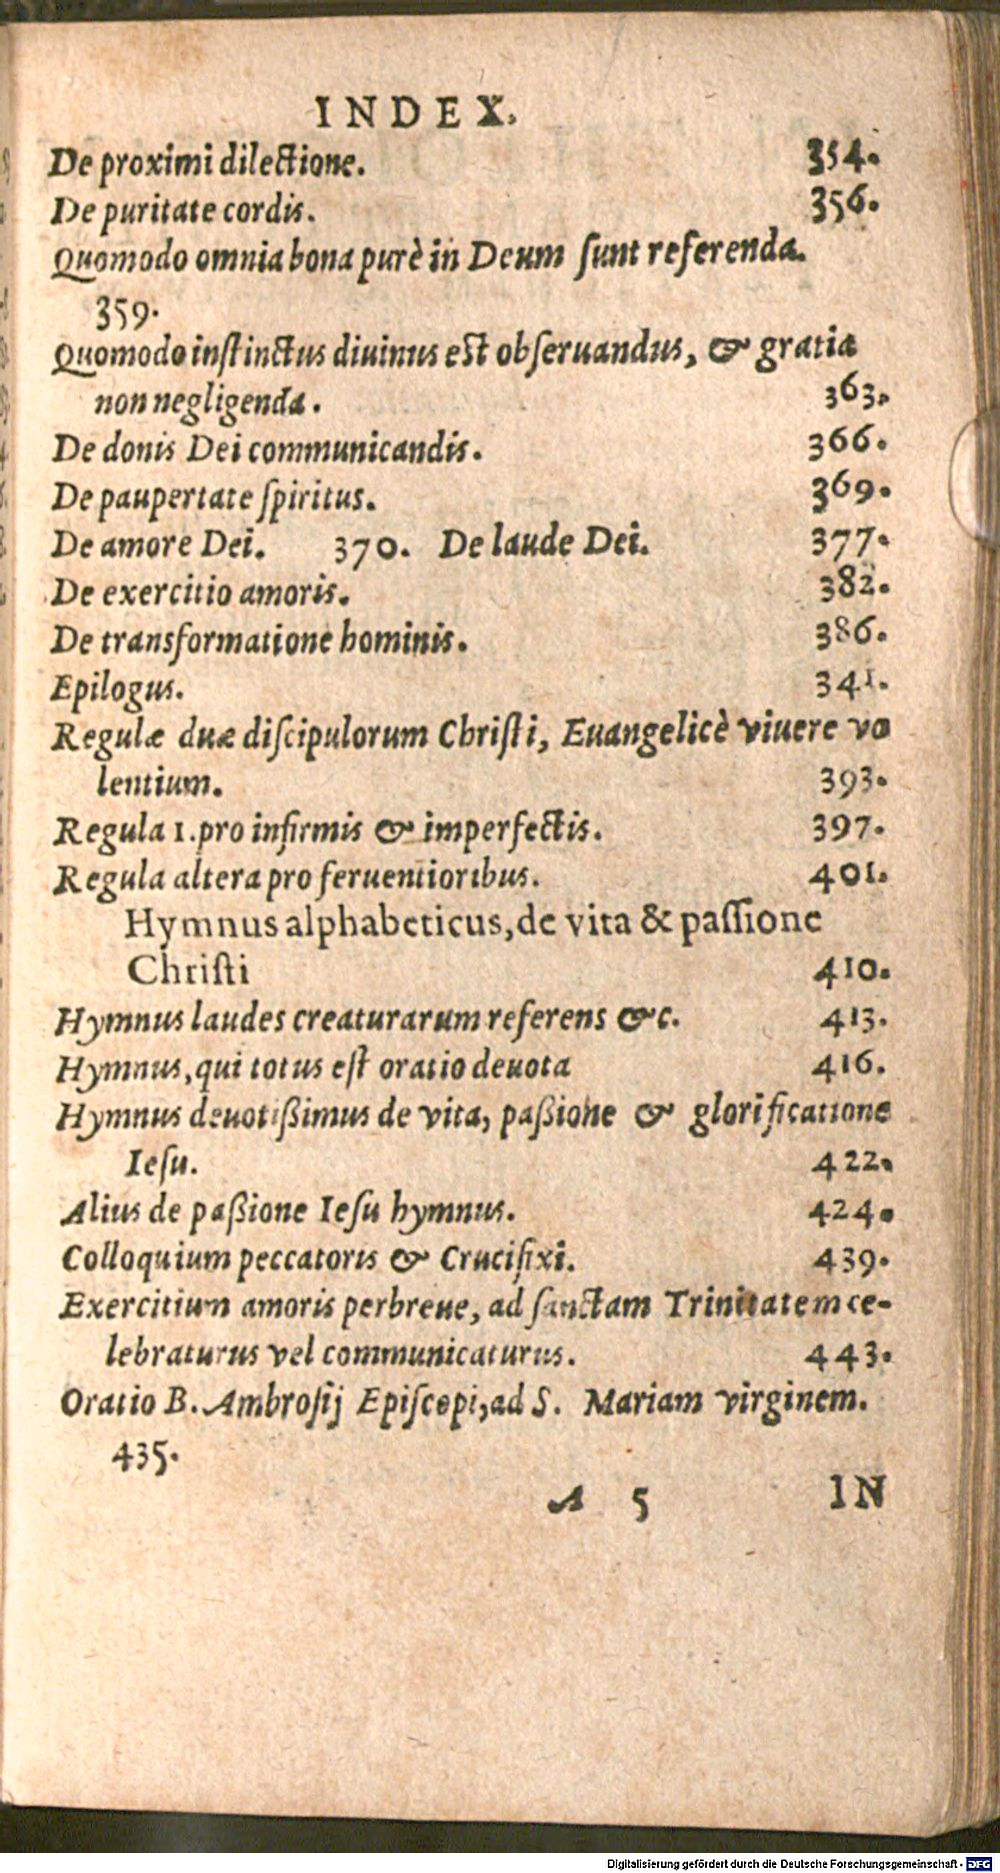 INDEX.
De proximi dilectione. 354.
De puritate cordis. 356.
Quomodo omnia bona purè in Deum ſunt referenda.
359.
Quomodo inſtinctus diuinus eſt obſeruandus, & gratia
non negligenda. 363.
De donis Dei communicandis. 366.
De paupertate ſpiritus. 369.
De amore Dei. 370. De laude Dei. 377.
De exercitio amoris. 382.
De transformatione hominis. 386.
Epilogus. 341.
Regulæ duæ diſcipulorum Chriſti, Euangelicè viuere vo
lentium. 393.
Regula 1. pro infirmis & imperfectis. 397.
Regula altera pro feruentioribus. 401.
Hymnus alphabeticus, de vita & paſſione
Chriſti 410.
Hymnus laudes creaturarum referens &c. 413.
Hymnus, qui totus eſt oratio deuota 416.
Hymnus deuotißimus de vita, paßione & glorificatione
Ieſu. 422.
Alius de paßione Ieſu hymnus. 424.
Colloquium peccatoris & Crucifixi. 439.
Exercitium amoris perbreue, ad ſanctam Trinitatem ce-
lebraturus vel communicaturus. 443.
Oratio B. Ambroſij Epiſcopi, ad S. Mariam virginem.
435.
A 5 IN
Digitalisierung gefördert durch die Deutsche Forschungsgemeinschaft - DFG